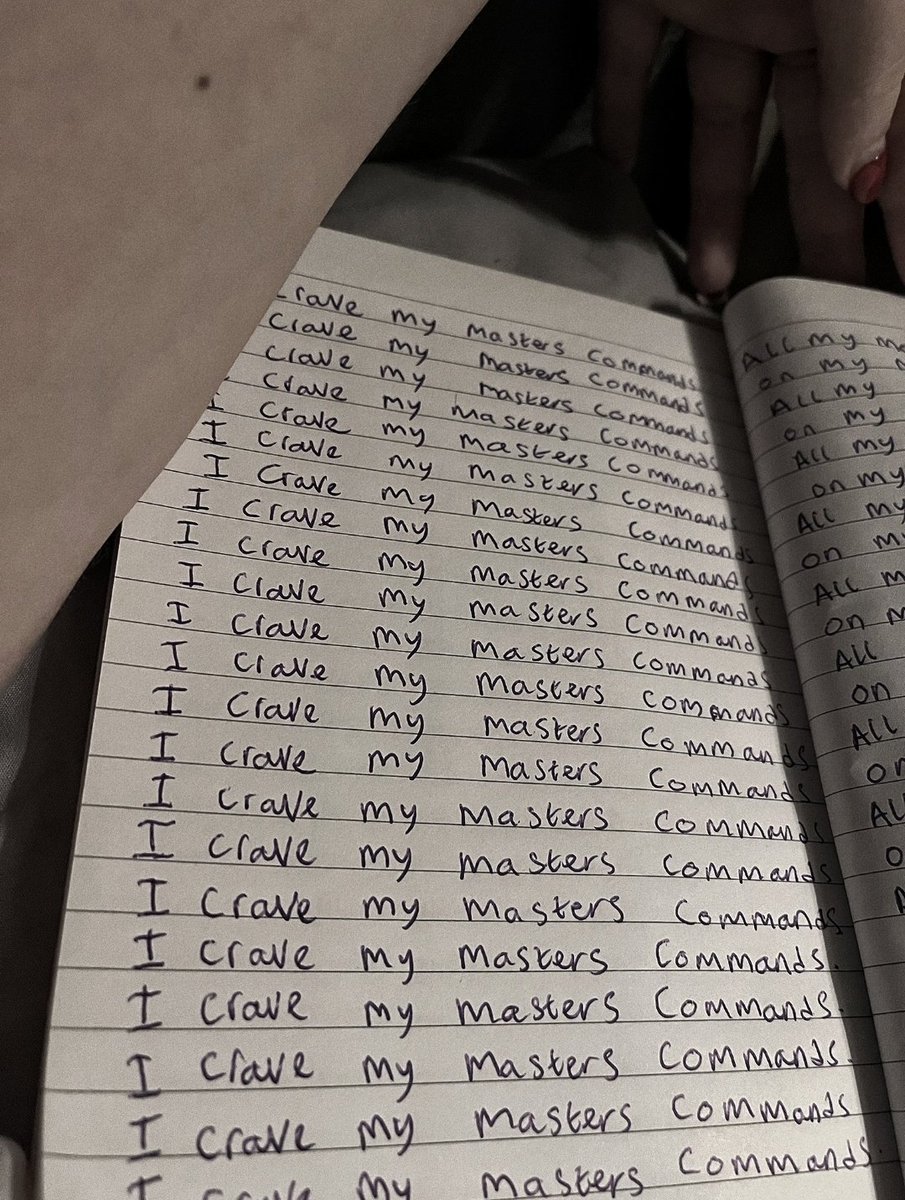 Crave my masters commands
Crave my masters commands
Crave my masters commands
Crave my masters commands
I Crave my masters commands
I Crave my masters commands
I Crave my masters commands
I Crave my masters commands
I Crave my masters commands
I Crave my masters commands
I Crave my masters commands
I Crave my masters commands
I Crave my masters commands
I Crave my masters commands
I Crave my masters commands
I Crave my masters commands
I Crave my masters commands
I Crave my masters commands.
I Crave my masters commands.
I Crave my masters commands.
I Crave my masters commands
I Crave my masters commands.
All my
on my
All my
on my
All my
on my
All my
on
All
on
All
on
All
on